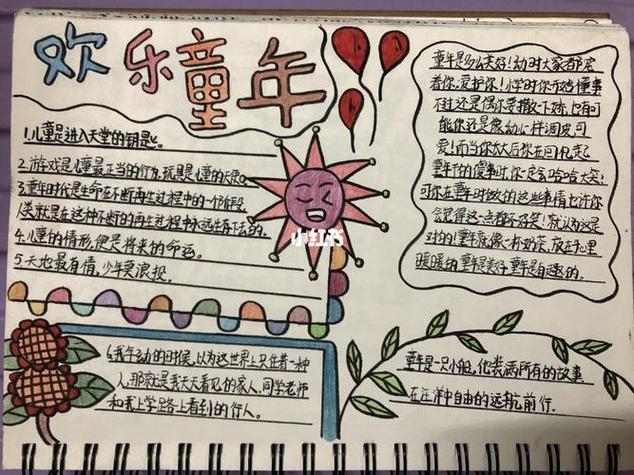 欢乐童年
1.儿童是进入天堂的钥匙。
2.游戏是儿童最正当的行为,玩具是儿童的天使。
3.童年时代是生命在不断再生过程中的一个阶段,
人类就是在这种不断的再生过程中永远生存下去的。
4.儿童的情形,便是将来的命运。
5.天地最有情,少年莫浪投。
小红书
童年是多么美好!幼时大家都宠
着你,爱护你!小学时你开始懂事
不过还是偶尔耍撒下娇,也有可
能你还是像幼儿一样调皮可
爱!而当你长大后你在回忆起
童年干的傻事时你定会哈哈大笑!
可你在童年时做的这些事情也许你
会觉得这一点都不好笑!就认为这是
对的!童年就像一杯奶茶,放在心里
暖暖的,童年是美好,童年是有趣的。
6.我年幼的时候,以为这世界上只住着一种
人,那就是我天天看见的家人、同学老师
和我上学路上看到的行人。
童年是一只小船,化装满所有的故事
在汪洋中自由的远航前行.